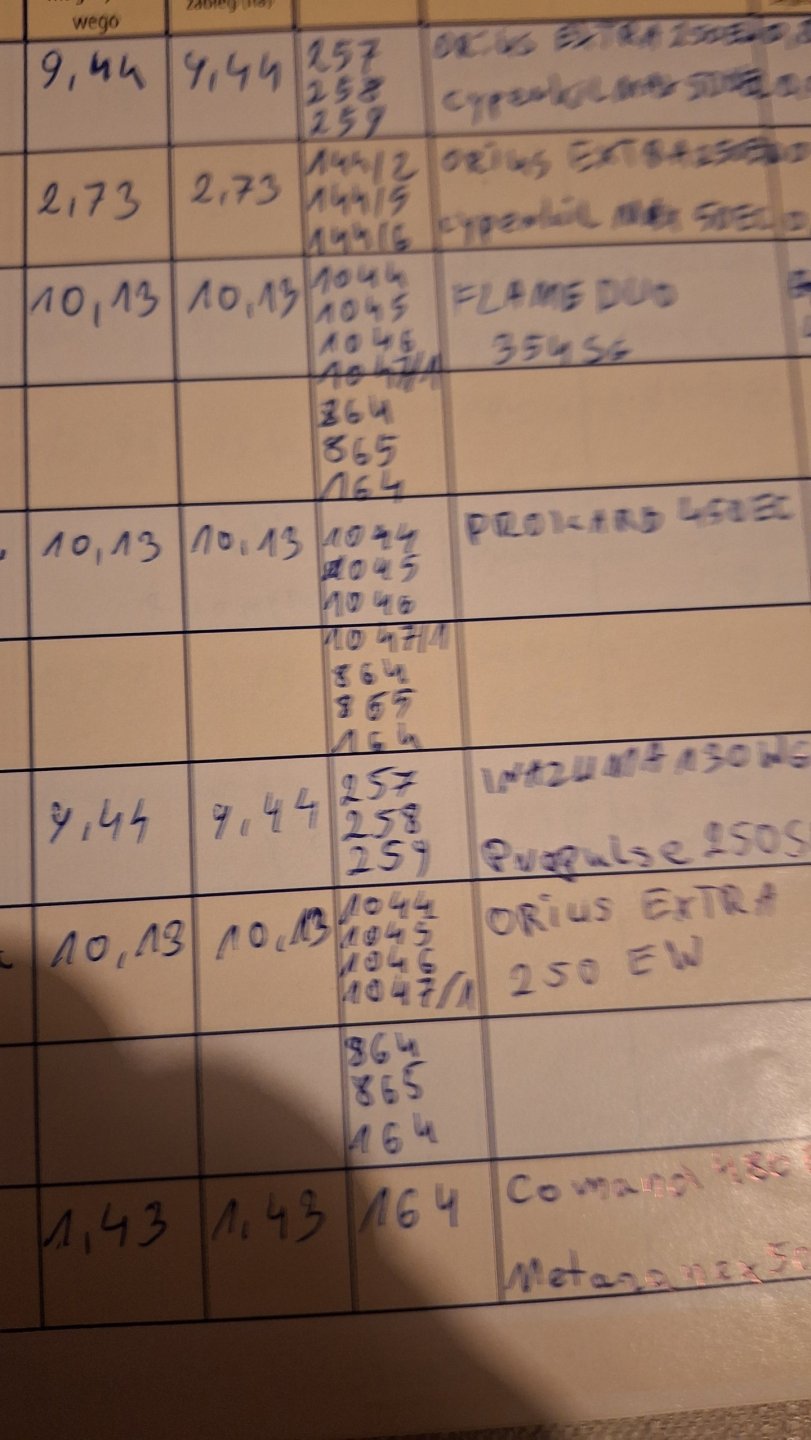 wego
zabieg (ha)
9,44 9,44 257
258
259
ORIUS EXTRA 250EW
cyperkil MAX 50
2,73 2,73 144/2
144/5
144/6
ORIUS EXTRA 250EW
cyperkil MAX 50EC
10,13 10,13 1044
1045
1046
1047/1
FLAME DUO
354 SG
864
865
164
10,13 10,13 1044
1045
1046
PROKARB 450EC
1047/1
864
865
164
9,44 9,44 257
258
259
INAZUMA 130 WG
Propulse 250S
10,13 10,13 1044
1045
1046
1047/1
ORIUS EXTRA
250 EW
864
865
164
1,43 1,43 164
Comand 480